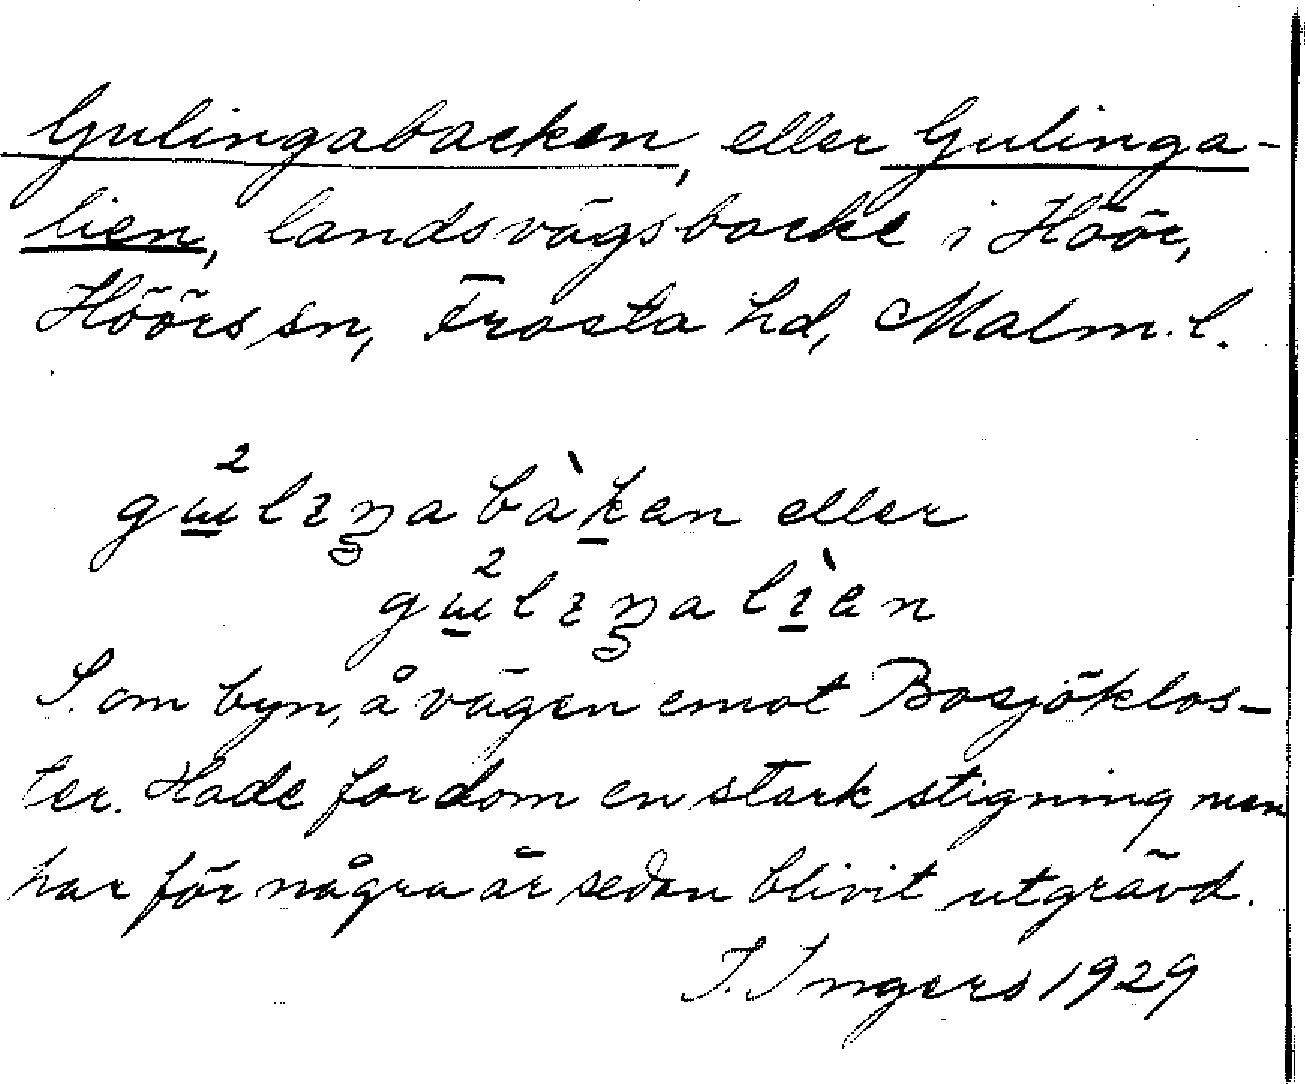 Gulingabacken, eller Gulinga-
lien, landsvägsbacke i Höör,
Höörs sn, Frosta hd, Malm. l.
eller
S. om byn, å vägen emot Bosjöklos-
ter. Hade fordom en stark stigning men
har för några år sedan blivit utgrävd.
I. Ingers 1929